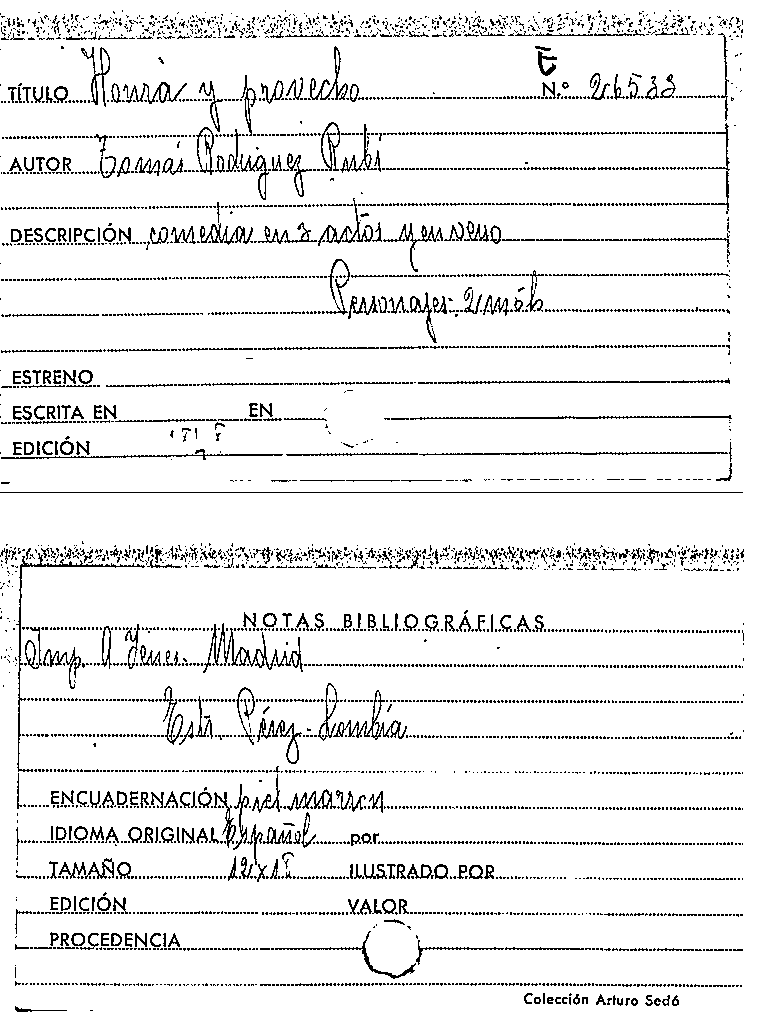 E
TÍTULO Honra y provecho N.º 26533
AUTOR Tomás Rodriguez Rubí
DESCRIPCIÓN comedia en 3 actos y en verso
Personajes. 2 m 5 h
ESTRENO
ESCRITA EN EN
EDICIÓN
NOTAS BIBLIOGRÁFICAS
Imp. Yenes. Madrid
Estr. Pérez-Lombía
ENCUADERNACIÓN piel marron
IDIOMA ORIGINAL Español por
TAMAÑO ILUSTRADO POR
EDICIÓN VALOR
PROCEDENCIA
Colección Arturo Sedó